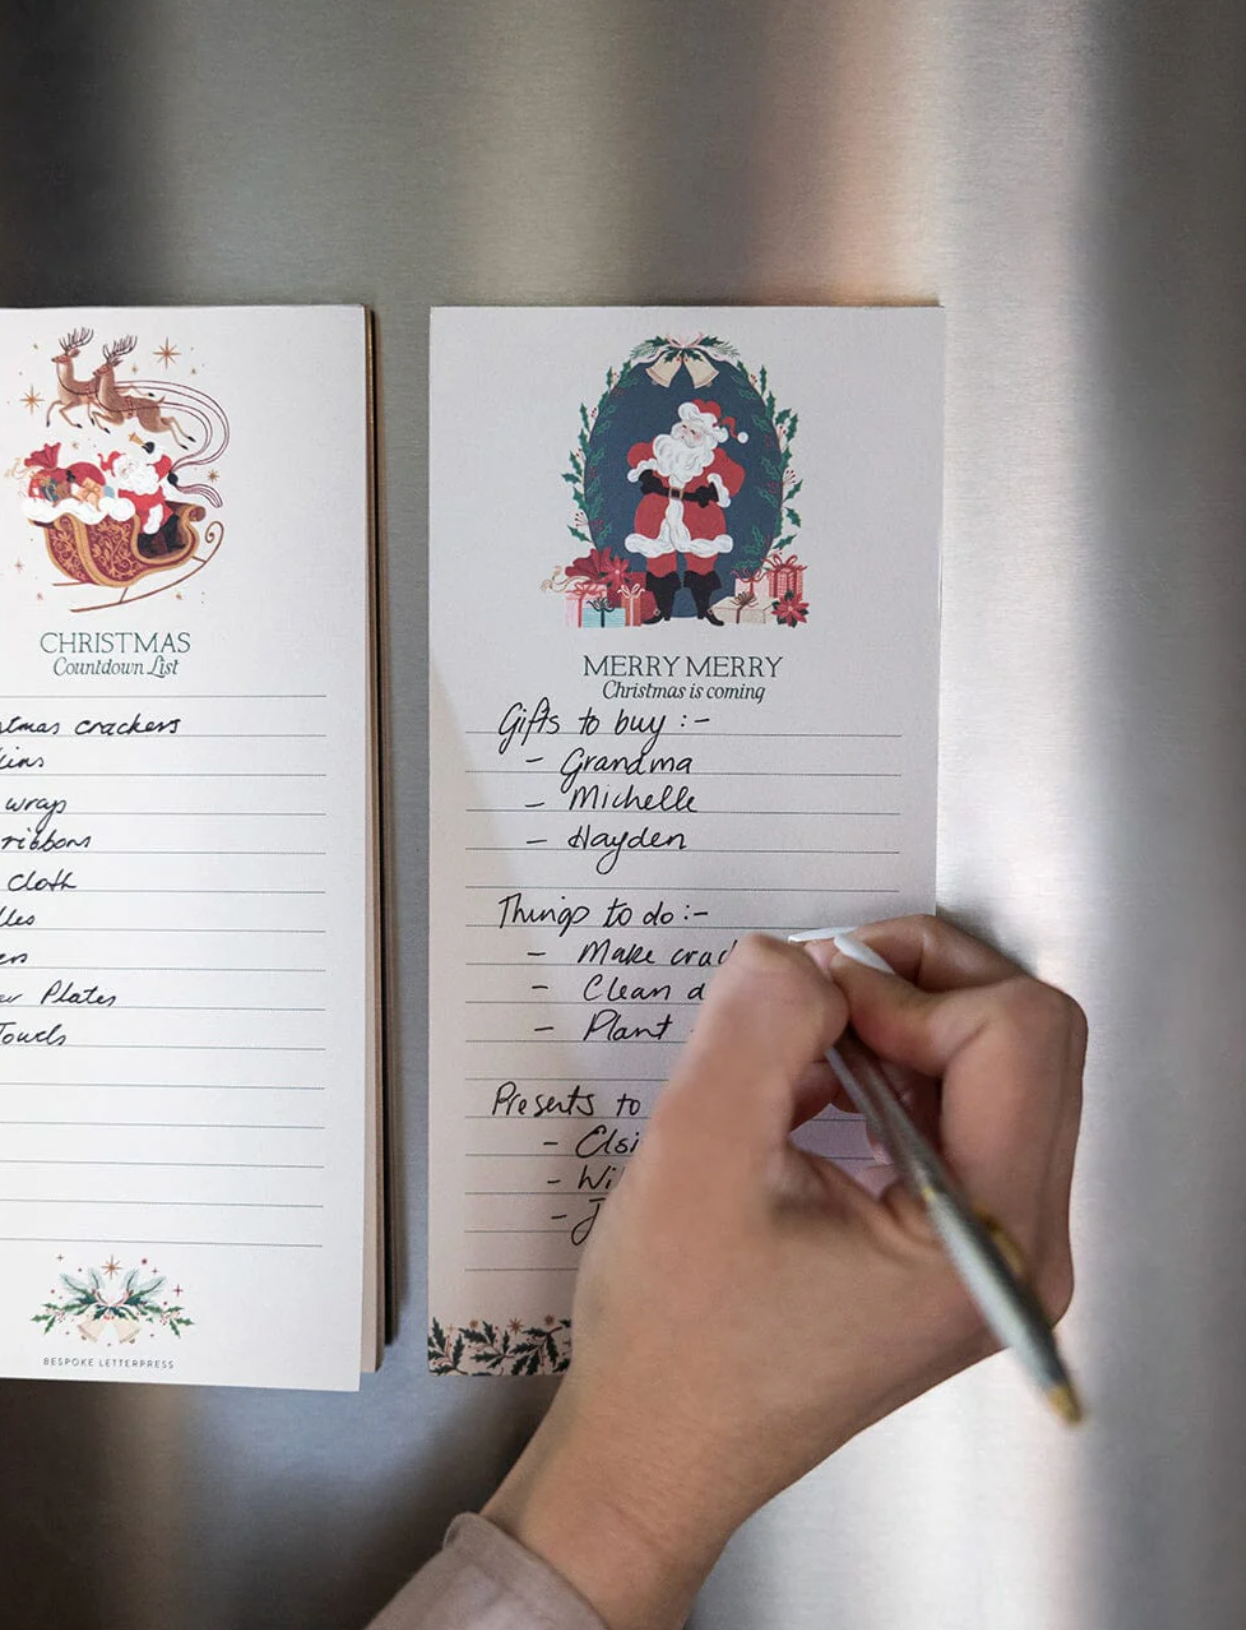 CHRISTMAS
Countdown List
crackers
wraps
ribbons
cloth
Plates
BESPOKE LETTERPRESS
MERRY MERRY
Christmas is coming
Gifts to buy :-
- Grandma
- Michelle
- Hayden
Things to do :-
- Make
- Clean
- Plant
Presents to